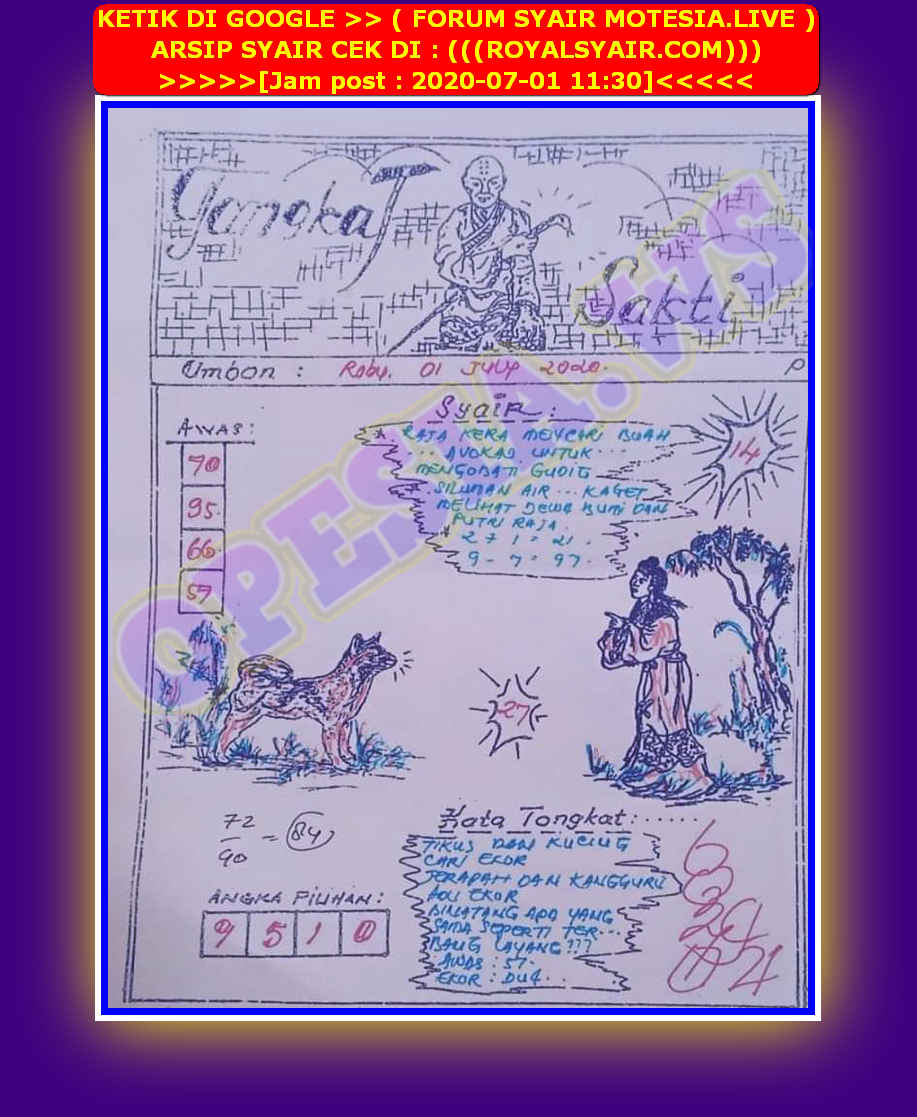 KETIK DI GOOGLE >> ( FORUM SYAIR MOTESIA.LIVE )
ARSIP SYAIR CEK DI : (((ROYALSYAIR.COM)))
>>>>>[Jam post : 2020-07-01 11:30]<<<<<
TongkaT
Sakti
OPESIA.WS
Umbon : Rabu. 01 JULY 2020.
P
AWAS:
70
95
66
57
Syair:
RAJA KERA MENCARI BUAH
... AVOKAD UNTUK ...
MENGOBATI GUDIG
SILUMAN AIR ... KAGET
MELIHAT DEWA BUMI DAN
PUTRI RAJA.
2 7 1 = 21.
9 - 7 = 97.
14
27
72
90
= 84
ANGKA PILIHAN:
9 5 1 0
Kata Tongkat:......
TIKUS DAN KUCING
CARI EKOR
JERAPAH DAN KANGGURU
ADU EKOR
BINATANG APA YANG
SAMA SEPERTI TER...
BANG LAYANG???
AWAS : 57.
EKOR : DUA..